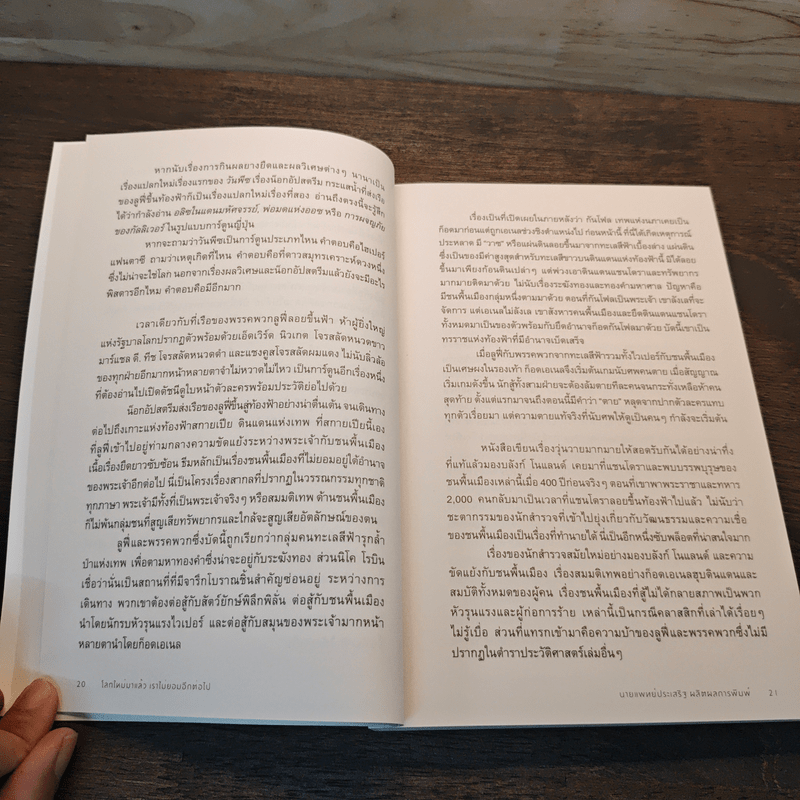 หากนับเรื่องการกินผลยางยืดและผลวิเศษต่างๆ นานาเป็น
เรื่องแปลกใหม่เรื่องแรกของ วันพีซ เรื่องน็อกอัปสตรีม กระแสน้ำที่ส่งเรือ
ของลูฟี่ขึ้นท้องฟ้าก็เป็นเรื่องแปลกใหม่เรื่องที่สอง อ่านถึงตรงนี้จะรู้สึก
ได้ว่ากำลังอ่าน อลิซในแดนมหัศจรรย์, พ่อมดแห่งออซ หรือ การผจญภัย
ของกัลลิเวอร์ ในรูปแบบการ์ตูนญี่ปุ่น
หากจะถามว่าวันพีซเป็นการ์ตูนประเภทไหน คำตอบคือไฮเปอร์
แฟนตาซี ถามว่าเหตุเกิดที่ไหน คำตอบคือที่ดาวสมุทรเคราะห์ดวงหนึ่ง
ซึ่งไม่น่าจะใช่โลก นอกจากเรื่องผลวิเศษและน็อกอัปสตรีมแล้วยังจะมีอะไร
พิสดารอีกไหม คำตอบคือมีอีกมาก
เวลาเดียวกับที่เรือของพรรคพวกลูฟี่ลอยขึ้นฟ้า ห้าผู้ยิ่งใหญ่
แห่งรัฐบาลโลกปรากฏตัวพร้อมด้วยเอ็ดเวิร์ด นิวเกต โจรสลัดหนวดขาว
มาร์แชล ดี. ทีช โจรสลัดหนวดดำ และแชงคูสโจรสลัดผมแดง ไม่นับลิ่วล้อ
ของทุกฝ่ายอีกมากหน้าหลายตาจำไม่หวาดไม่ไหว เป็นการ์ตูนอีกเรื่องหนึ่ง
ที่ต้องอ่านไปเปิดดัชนีดูใบหน้าตัวละครพร้อมประวัติย่อไปด้วย
น็อกอัปสตรีมส่งเรือของลูฟี่ขึ้นสู่ท้องฟ้าอย่างน่าตื่นเต้น จนเดินทาง
ต่อไปถึงเกาะแห่งท้องฟ้าสกายเปีย ดินแดนแห่งเทพ ที่สกายเปียนี้เอง
ที่ลูฟี่เข้าไปอยู่ท่ามกลางความขัดแย้งระหว่างพระเจ้ากับชนพื้นเมือง
เนื้อเรื่องยืดยาวซับซ้อน ธีมหลักเป็นเรื่องชนพื้นเมืองที่ไม่ยอมอยู่ใต้อำนาจ
ของพระเจ้าอีกต่อไป นี่เป็นโครงเรื่องสากลที่ปรากฏในวรรณกรรมทุกชาติ
ทุกภาษา พระเจ้ามีทั้งที่เป็นพระเจ้าจริงๆ หรือสมมติเทพ ด้านชนพื้นเมือง
ก็ไม่พ้นกลุ่มชนที่สูญเสียทรัพยากรและใกล้จะสูญเสียอัตลักษณ์ของตน
ลูฟี่และพรรคพวกซึ่งบัดนี้ถูกเรียกว่ากลุ่มคนทะเลสีฟ้ารุกล้ำ
ป่าแห่งเทพ เพื่อตามหาทองคำซึ่งน่าจะอยู่กับระฆังทอง ส่วนนิโค โรบิน
เชื่อว่านั่นเป็นสถานที่ที่มีจารึกโบราณชิ้นสำคัญซ่อนอยู่ ระหว่างการ
เดินทาง พวกเขาต้องต่อสู้กับสัตว์ยักษ์พิลึกพิลั่น ต่อสู้กับชนพื้นเมือง
นำโดยนักรบหัวรุนแรงไวเปอร์ และต่อสู้กับสมุนของพระเจ้ามากหน้า
หลายตานำโดยก็อดเอเนล
20 โลกใหม่มาแล้ว เราไม่ยอมอีกต่อไป
เรื่องเป็นที่เปิดเผยในภายหลังว่า กันโฟล เทพแห่งนภาเคยเป็น
ก็อดมาก่อนแต่ถูกเอเนลช่วงชิงตำแหน่งไป ก่อนหน้านี้ ที่นี่ได้เกิดเหตุการณ์
ประหลาด มี "วาซ" หรือแผ่นดินลอยขึ้นมาจากทะเลสีฟ้าเบื้องล่าง แผ่นดิน
ซึ่งเป็นของมีค่าสูงสุดสำหรับทะเลสีขาวบนดินแดนแห่งท้องฟ้านี้ มิได้ลอย
ขึ้นมาเพียงก้อนดินเปล่าๆ แต่พ่วงเอาดินแดนแชนโดราและทรัพยากร
มากมายติดมาด้วย ไม่นับเรื่องระฆังทองและทองคำมหาศาล ปัญหาคือ
มีชนพื้นเมืองกลุ่มหนึ่งตามมาด้วย ตอนที่กันโฟลเป็นพระเจ้า เขาลังเลที่จะ
จัดการ แต่เอเนลไม่ลังเล เขาสังหารคนพื้นเมือง และยึดดินแดนแชนโดรา
ทั้งหมดมาเป็นของตัวพร้อมกับยึดอำนาจก็อดกันโฟลมาด้วย บัดนี้เขาเป็น
ทรราชแห่งท้องฟ้าที่มีอำนาจเบ็ดเสร็จ
เมื่อลูฟี่กับพรรคพวกจากทะเลสีฟ้ารวมทั้งไวเปอร์กับชนพื้นเมือง
เป็นเศษผงในรองเท้า ก็อดเอเนลจึงเริ่มต้นเกมนับศพคนตาย เมื่อสัญญาณ
เริ่มเกมดังขึ้น นักสู้ทั้งสามฝ่ายจะต้องล้มตายทีละคนจนกระทั่งเหลือห้าคน
สุดท้าย ตั้งแต่แรกมาจนถึงตอนนี้มีคำว่า "ตาย" หลุดจากปากตัวละครแทบ
ทุกตัวเรื่อยมา แต่ความตายแท้จริงที่นับศพให้ดูเป็นคนๆ กำลังจะเริ่มต้น
หนังสือเขียนเรื่องวุ่นวายมากมายให้สอดรับกันได้อย่างน่าทึ่ง
ที่แท้แล้วมองบลังก์ โนแลนด์ เคยมาที่แชนโดราและพบบรรพบุรุษของ
ชนพื้นเมืองเหล่านี้เมื่อ 400 ปีก่อนจริงๆ ตอนที่เขาพาพระราชาและทหาร
2,000 คนกลับมาเป็นเวลาที่แชนโดราลอยขึ้นท้องฟ้าไปแล้ว ไม่นับว่า
ชะตากรรมของนักสำรวจที่เข้าไปยุ่งเกี่ยวกับวัฒนธรรมและความเชื่อ
ของชนพื้นเมืองเป็นเรื่องที่ทำนายได้ นี่เป็นอีกหนึ่งซับพล็อตที่น่าสนใจมาก
เรื่องของนักสำรวจสมัยใหม่อย่างมองบลังก์ โนแลนด์ และความ
ขัดแย้งกับชนพื้นเมือง เรื่องสมมติเทพอย่างก็อดเอเนลฮุบดินแดนและ
สมบัติทั้งหมดของผู้คน เรื่องชนพื้นเมืองที่สู้ไม่ได้กลายสภาพเป็นพวก
หัวรุนแรงและผู้ก่อการร้าย เหล่านี้เป็นกรณีคลาสสิกที่เล่าได้เรื่อยๆ
ไม่รู้เบื่อ ส่วนที่แทรกเข้ามาคือความบ้าของลูฟี่และพรรคพวกซึ่งไม่มี
ปรากฏในตำราประวัติศาสตร์เล่มอื่นๆ
นายแพทย์ประเสริฐ ผลิตผลการพิมพ์ 21